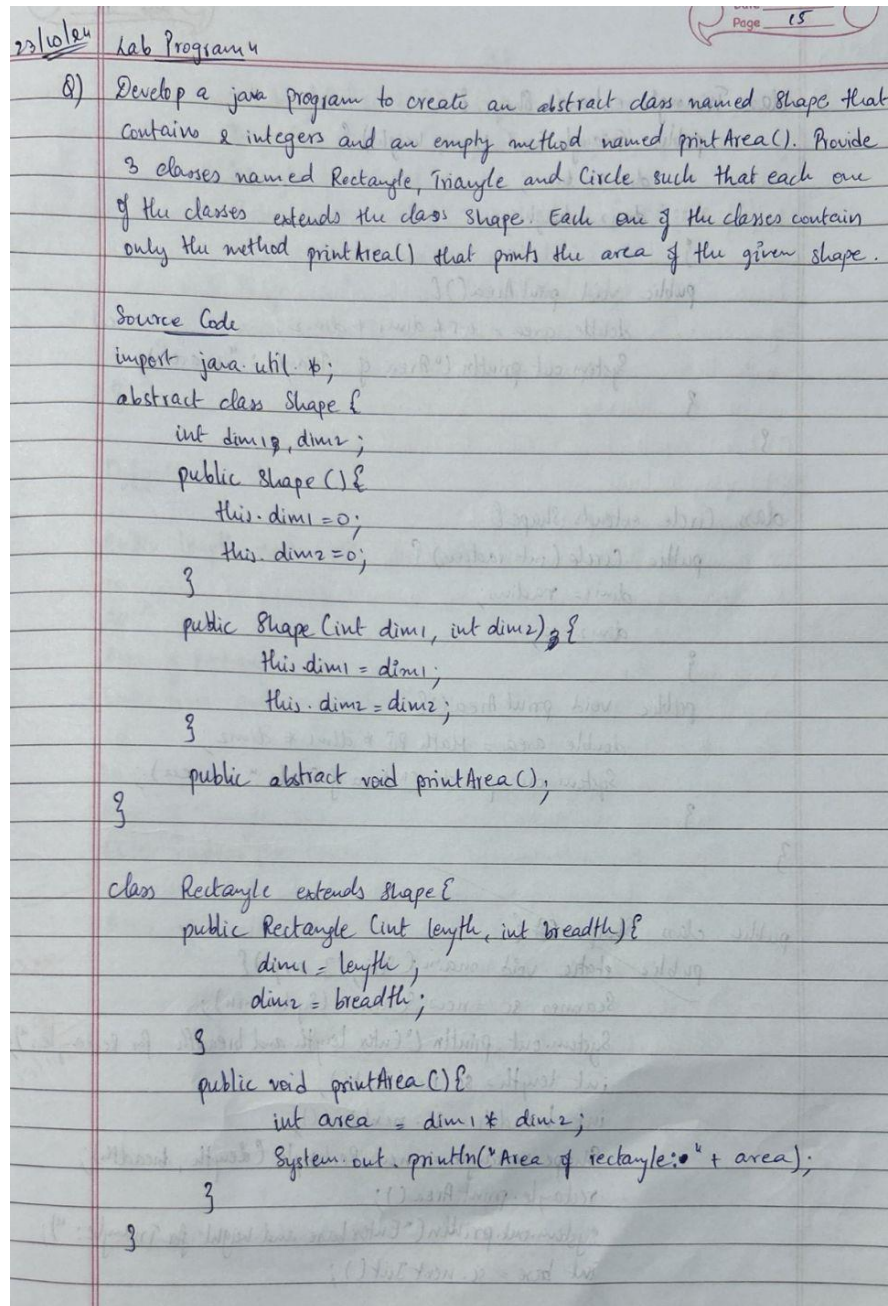 Page 15
23/10/24 Lab Program 4
Q) Develop a java program to create an abstract class named Shape that
contains 2 integers and an empty method named printArea(). Provide
3 classes named Rectangle, Triangle and Circle such that each one
of the classes extends the class Shape. Each one of the classes contain
only the method printArea() that prints the area of the given shape.
Source Code
import java.util.*;
abstract class Shape {
int dim1, dim2;
public Shape () {
this.dim1 = 0;
this.dim2 = 0;
}
public Shape (int dim1, int dim2) {
this.dim1 = dim1;
this.dim2 = dim2;
}
public abstract void printArea();
}
class Rectangle extends Shape {
public Rectangle (int length, int breadth) {
dim1 = length;
dim2 = breadth;
}
public void printArea() {
int area = dim1 * dim2;
System.out.println("Area of rectangle: " + area);
}
}